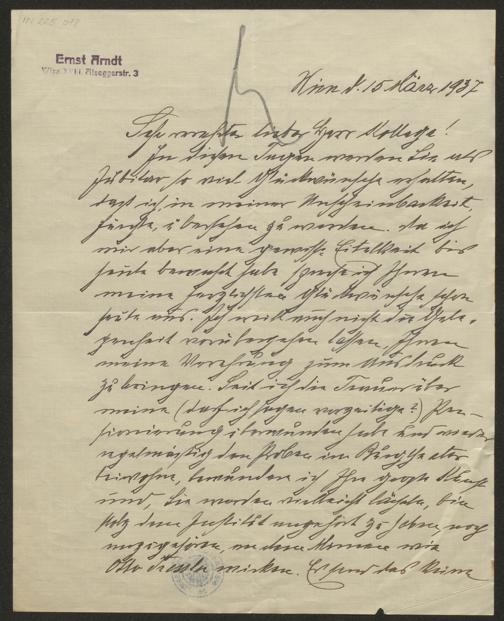 IN 225.077
Ernst Arndt
Wien XVIII. Alseggerstr. 3
Wien d. 15 März 1937
Sehr verehrter lieber Herr Kollege!
In diesen Tagen werden Sie als
Jubilar so viel Glückwünsche erhalten,
daß ich in meiner Unscheinbarkeit
fürchte, übersehen zu werden. Da ich
mir aber eine gewisse Eitelkeit bis
heute bewahrt habe spreche ich Ihnen
meine herzlichsten Glückwünsche schon
heute aus. Ich will auch nicht die Gele-
genheit vorübergehen lassen, Ihnen
meine Verehrung zum Ausdruck
zu bringen. Seit ich die Trauer über
meine (darf ich sagen vorzeitige?) Pen-
sionierung überwunden habe und wieder
regelmäßig den Proben im Burgtheater
beiwohne, bewundere ich Ihre große Kunst
und, Sie werden vielleicht lächeln, bin
stolz dem Institut angehört zu haben, noch
anzugehören, an dem Männer wie
Otto Tressler wirken. Es sind das keine